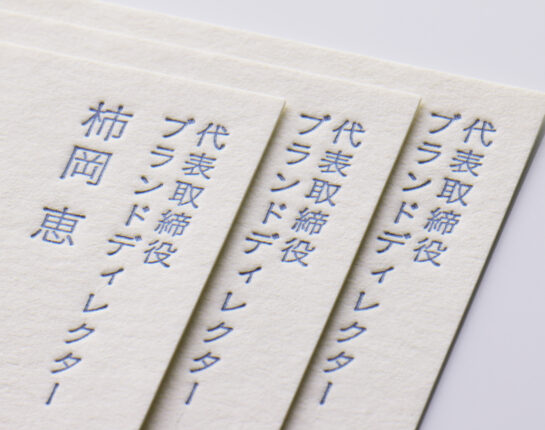 代表取締役
ブランドディレクター
代表取締役
ブランドディレクター
代表取締役
ブランドディレクター
柿岡 恵